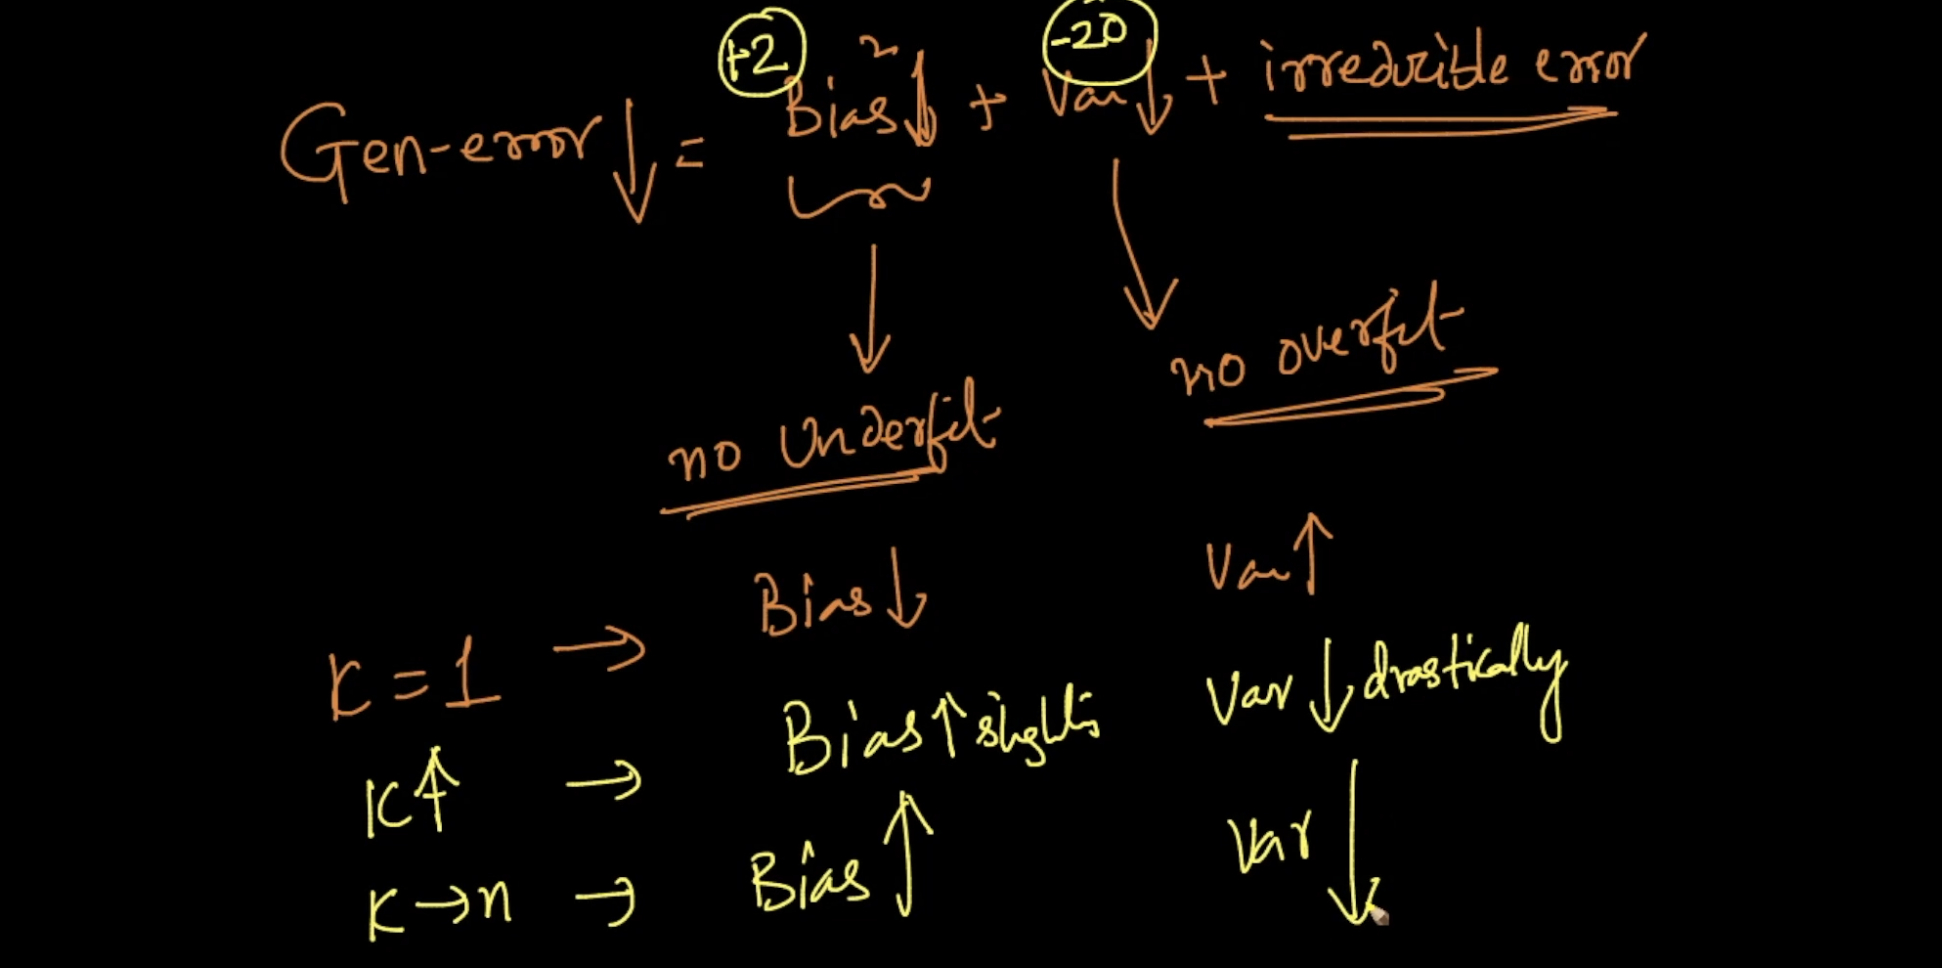 +2 -20
Gen-error ↓ = Bias² ↓ + Var ↓ + irreducible error
no overfit
no Underfit
K = 1 → Bias ↓ Var ↑
K ↑ → Bias ↑ slightly Var ↓ drastically
K → n → Bias ↑ Var ↓